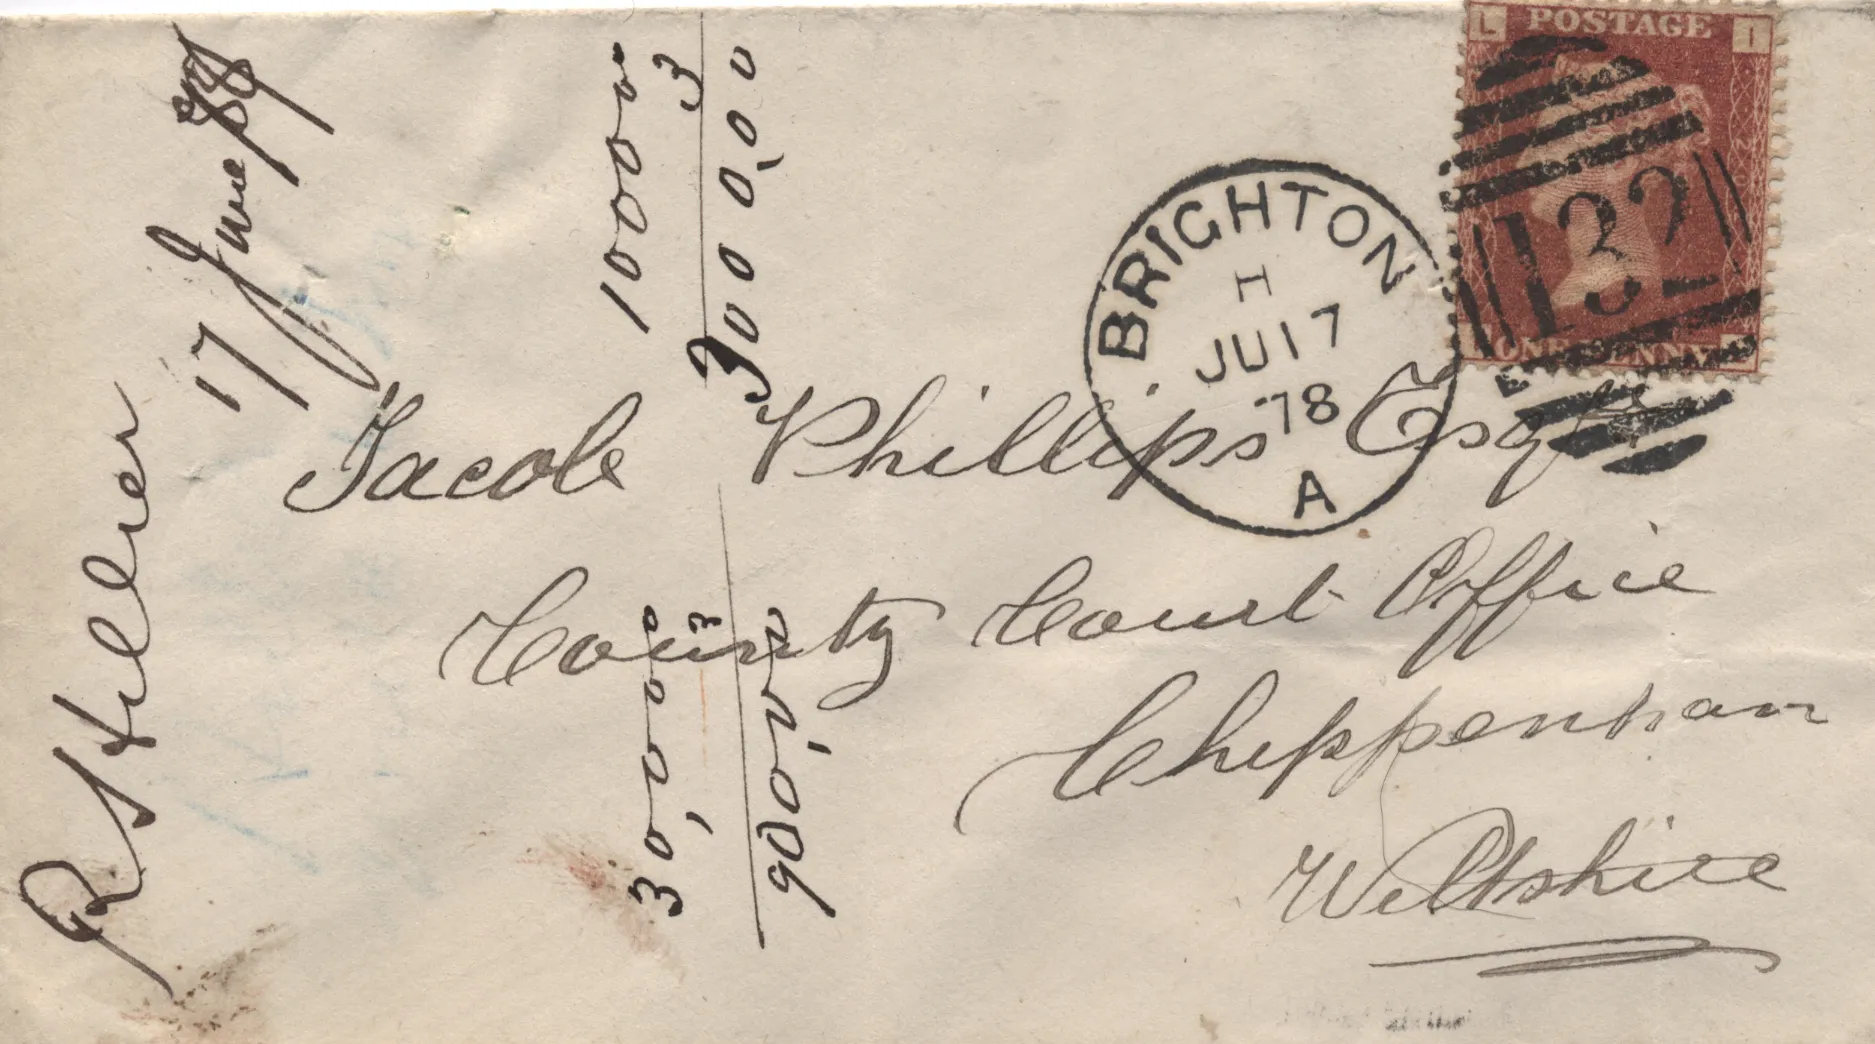 L POSTAGE I
132
ONE PENNY
BRIGHTON
H
JU 17
78
A
Jacob Phillips Esqre
County Court Office
Chippenham
Wiltshire
R S Hillier
17 June
10000
3
3000,00
30,000
3
900,00